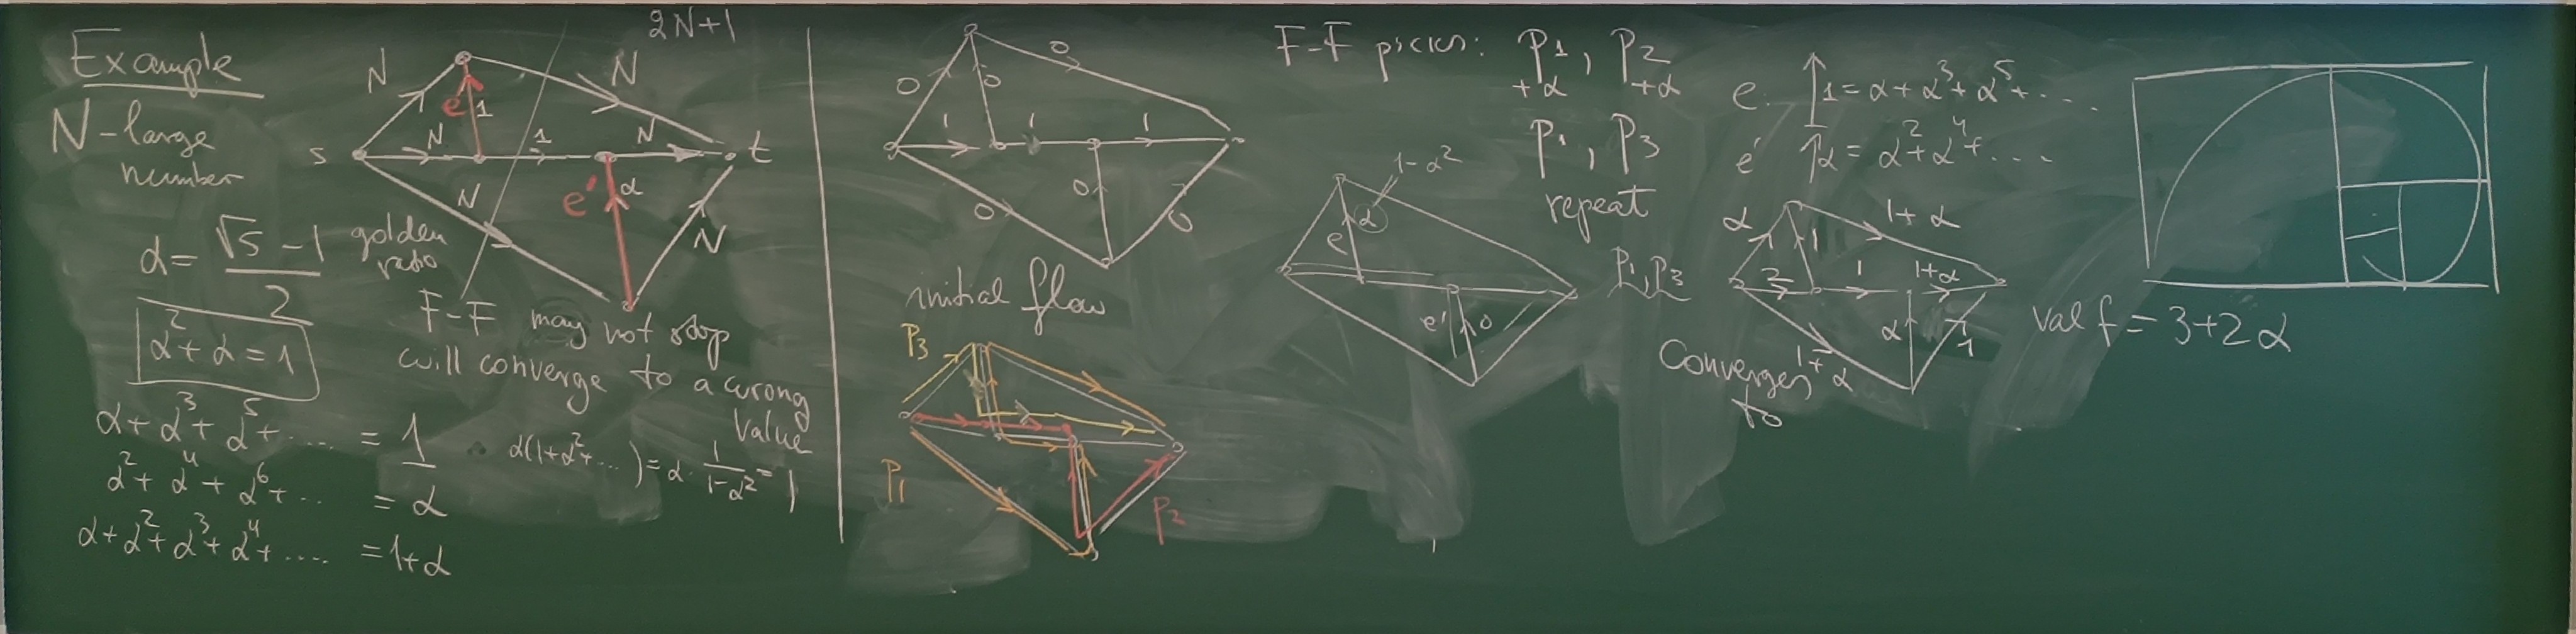 Example
N-large
number
α = (√5 - 1)/2 golden
ratio
α² + α = 1
α + α³ + α⁵ + .... = 1
α² + α⁴ + α⁶ + ... = α
α + α² + α³ + α⁴ + .... = 1+α
2N+1
N N
e 1
s N 1 N t
N e' α N
F-F may not stop
will converge to a wrong
value
α(1+α²+...) = α · 1/(1-α²) = 1
0 0 0
1 1 1
0 0 0
initial flow
P3
P1
P2
F-F picks: P1, P2
+α +α
P1, P3
repeat
1-α²
e α
e' 0
P1, P3
e ↑ 1 = α + α³ + α⁵ + ....
e' ↑ α = α² + α⁴ + ....
α 1 1+α
2 1 1+α
1+α α 1
Converges
to
val f = 3+2α